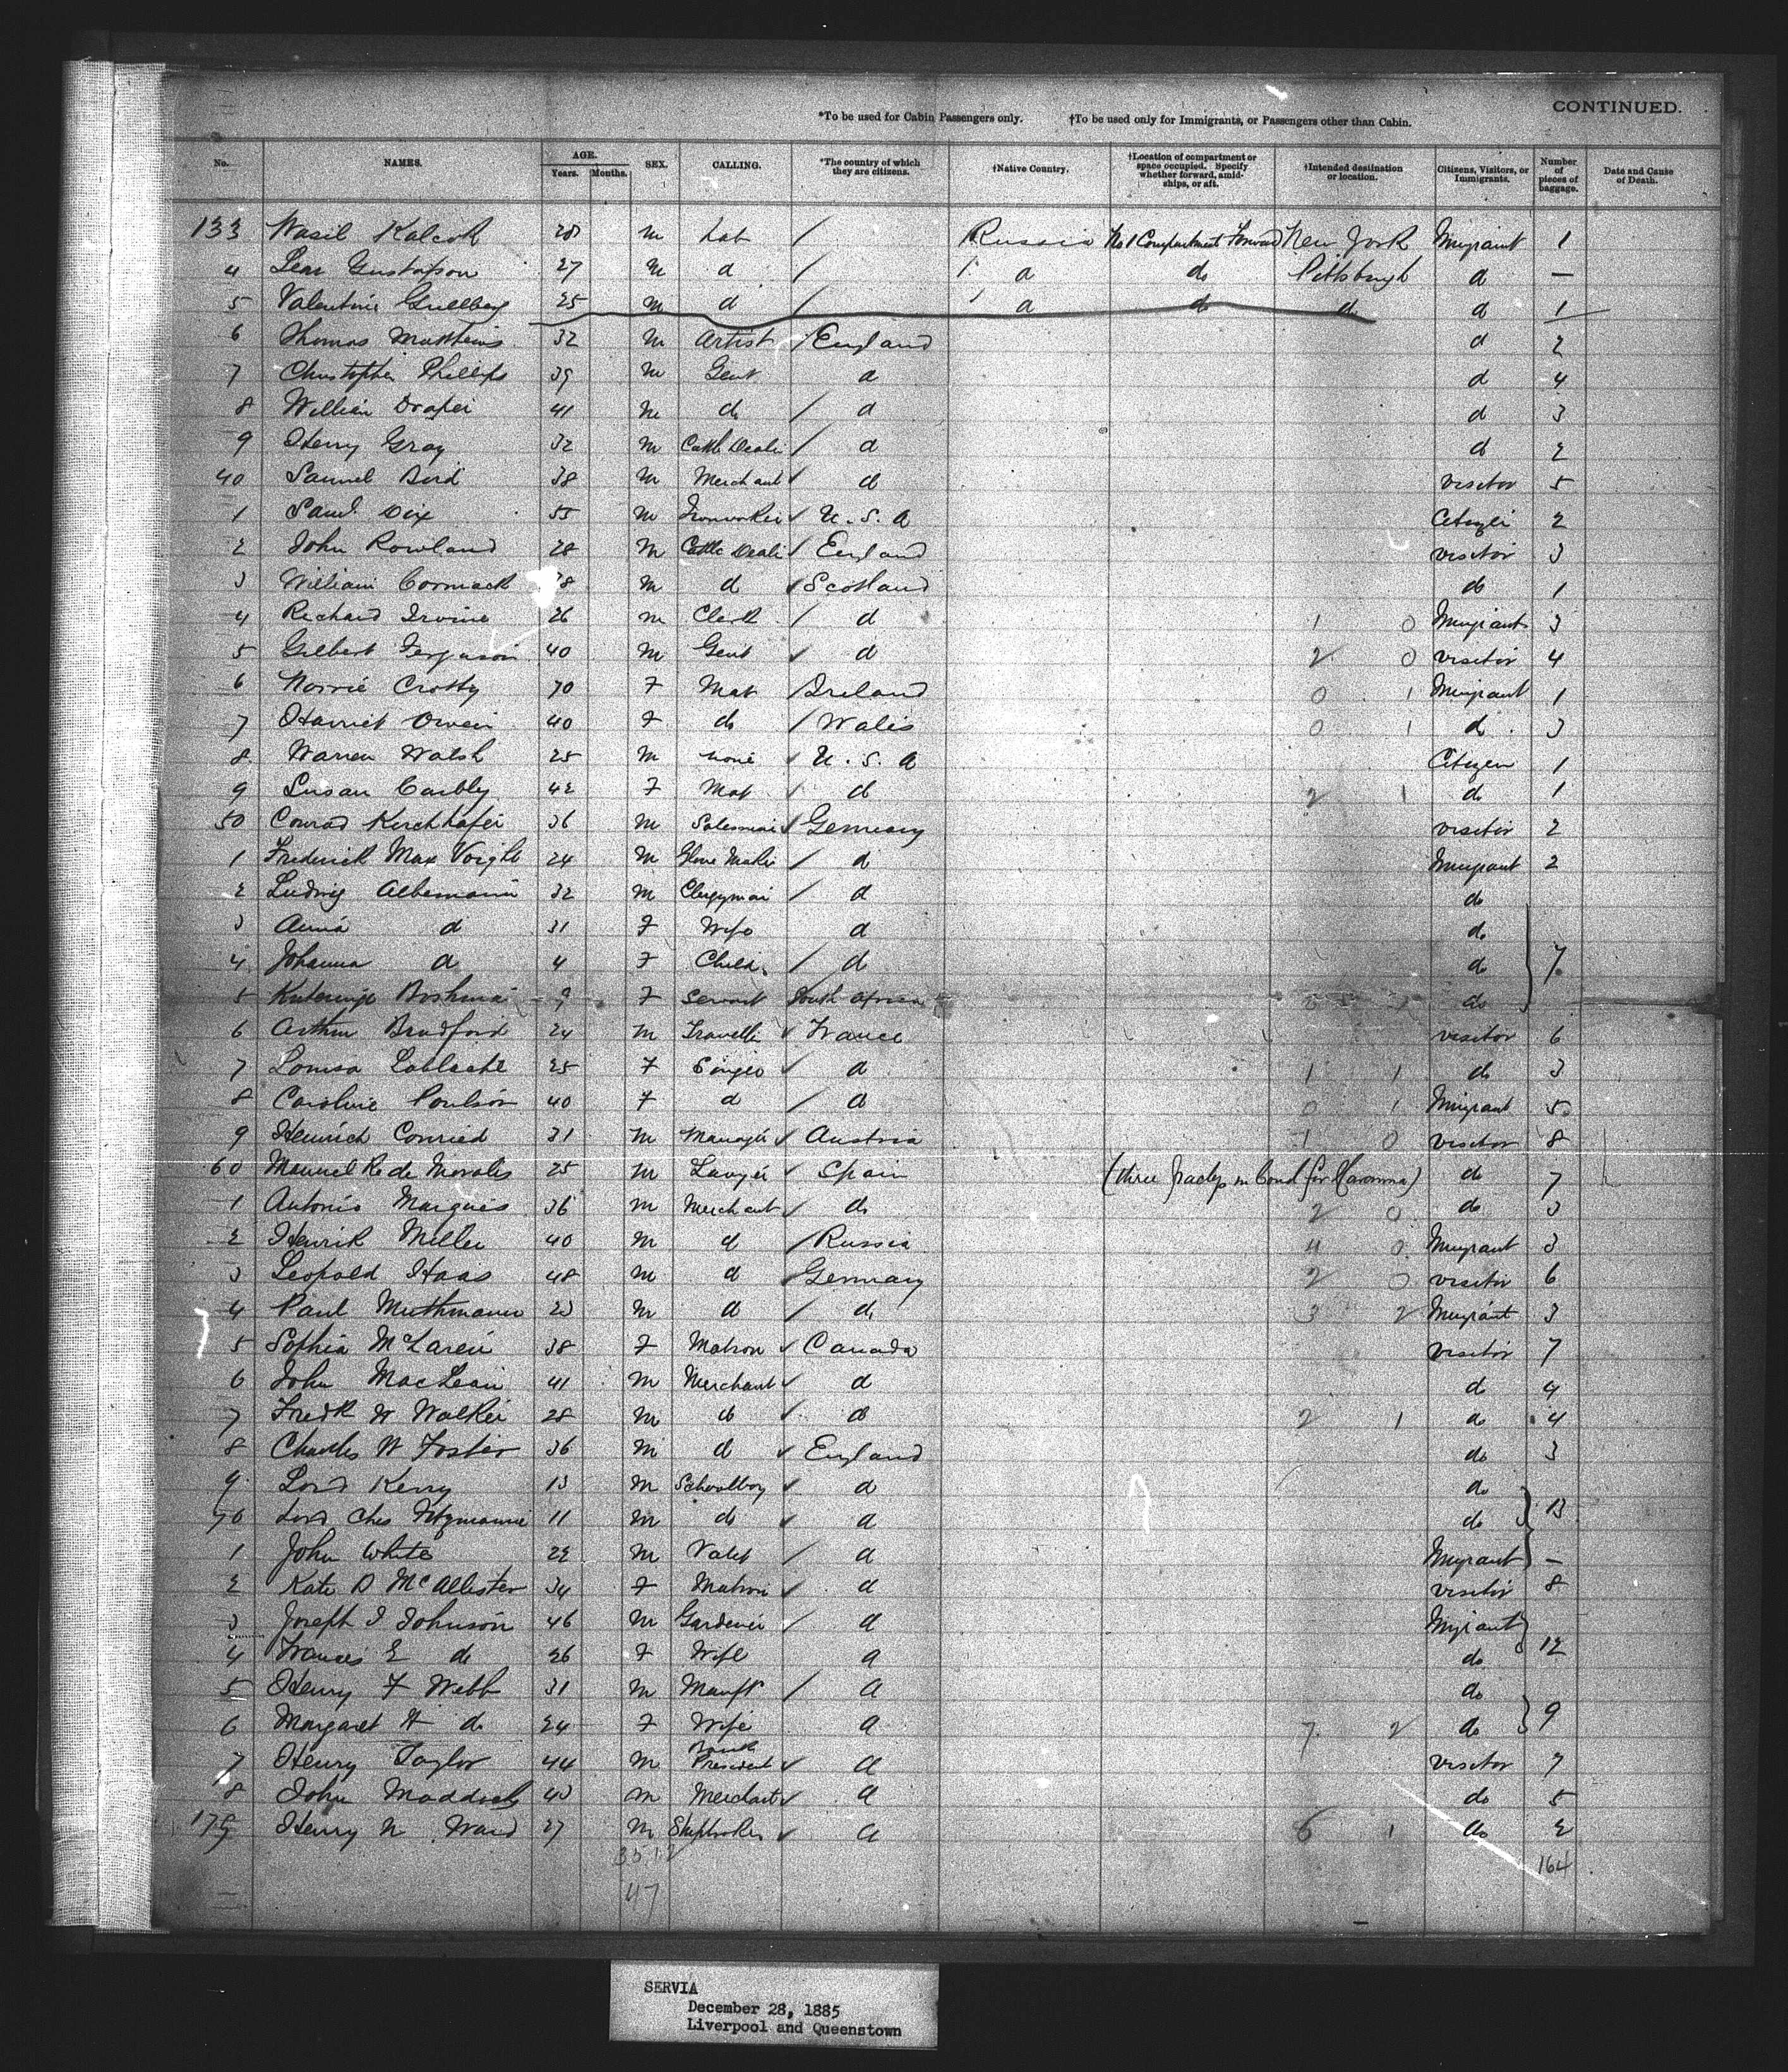 CONTINUED.
*To be used for Cabin Passengers only. †To be used only for Immigrants, or Passengers other than Cabin.
No. NAMES. AGE. Years. Months. SEX. CALLING. *The country of which they are citizens. †Native Country. †Location of compartment or space occupied. Specify whether forward, amidships, or aft. †Intended destination or location. Citizens, Visitors, or Immigrants. Number of pieces of baggage. Date and Cause of Death.
133 Wasil Kalcok 28 m Lab / Russia No 1 Compartment Forward New York Migrant 1
4 Gustafson 27 m d / d do Pittsburgh d —
5 Valentine Gullberg 25 m d / d do d d 1
6 Thomas Matthews 32 m Artist / England d 2
7 Christopher Phillips 39 m Gent d d 4
8 William Draper 41 m do / d d 3
9 Henry Gray 32 m Cattle Dealer / d do 2
40 Samuel Bird 38 m Merchant ✓ do visitor 5
1 Saml. Dix 55 m Ironworker ✓ U.S.A Citizen 2
2 John Rowland 28 m Cattle Dealer ✓ England visitor 3
3 William Cormack 8 m d ✓ Scotland do 1
4 Richard Irvine 26 m Clerk / d 1 0 Migrant 3
5 Gilbert Ferguson 40 m Gent ✓ d 2 0 visitor 4
6 Norrie Crotty 70 F Mat / Ireland 0 1 Migrant 1
7 Harriet Owen 40 F do / Wales 0 1 d 3
8 Warren Walsh 25 m none ✓ U.S.A Citizen 1
9 Susan 42 F Mat ✓ do 2 1 do 1
50 Conrad Kirchhafer 36 m Salesman ✓ Germany visitor 2
1 Frederick Max Voight 24 m Glove Maker / d Migrant 2
2 Ludwig Albemann 32 m Clergyman / d do
3 Anna d 31 F Wife d do
4 Johanna d 4 F Child / do do 7
5 Boshma 9 F Servant South Africa do
6 Arthur Bradford 24 m Traveller ✓ France visitor 6
7 Louisa Lablache 25 F Singer ✓ d 1 1 do 3
8 Caroline Poulson 40 F d / d 0 1 Migrant 5
9 Heinrich Conried 31 m Manager ✓ Austria 1 0 visitor 8
60 Manuel R de Morales 25 m Lawyer ✓ Spain (three packgs in bond for Havanna) do 7
1 Antonio Marques 36 m Merchant ✓ do 2 0 do 3
2 Henrik Miller 40 m d / Russia 4 0 Migrant 3
3 Leopold Haas 48 m d ✓ Germany 2 0 visitor 6
4 Paul Muthmann 23 m d / do 3 2 Migrant 3
5 Sophia McLaren 38 F Matron ✓ Canada visitor 7
6 John MacLean 41 m Merchant ✓ d do 4
7 Fredk W Walker 28 m do ✓ do 2 1 do 4
8 Charles W Foster 36 m d ✓ England do 3
9 Lord Kerry 13 m Schoolboy ✓ d do
70 Lord Chas Fitzmaurice 11 m do ✓ d do 13
1 John White 22 m Valet / d Migrant —
2 Kate D McAllister 34 F Matron ✓ d visitor 8
3 Joseph I Johnson 46 m Gardener / d Migrant
4 Frances E do 26 F Wife d do 12
5 Henry F Webb 31 m Manfr / d do
6 Margaret H do 24 F Wife d 7 2 do 9
7 Henry Taylor 44 m Bank President ✓ d visitor 7
8 John Maddock 40 m Merchant ✓ d do 5
179 Henry N Ward 27 m Shipbroker ✓ d 6 1 do 2
35 12 164
47
SERVIA
December 28, 1885
Liverpool and Queenstown